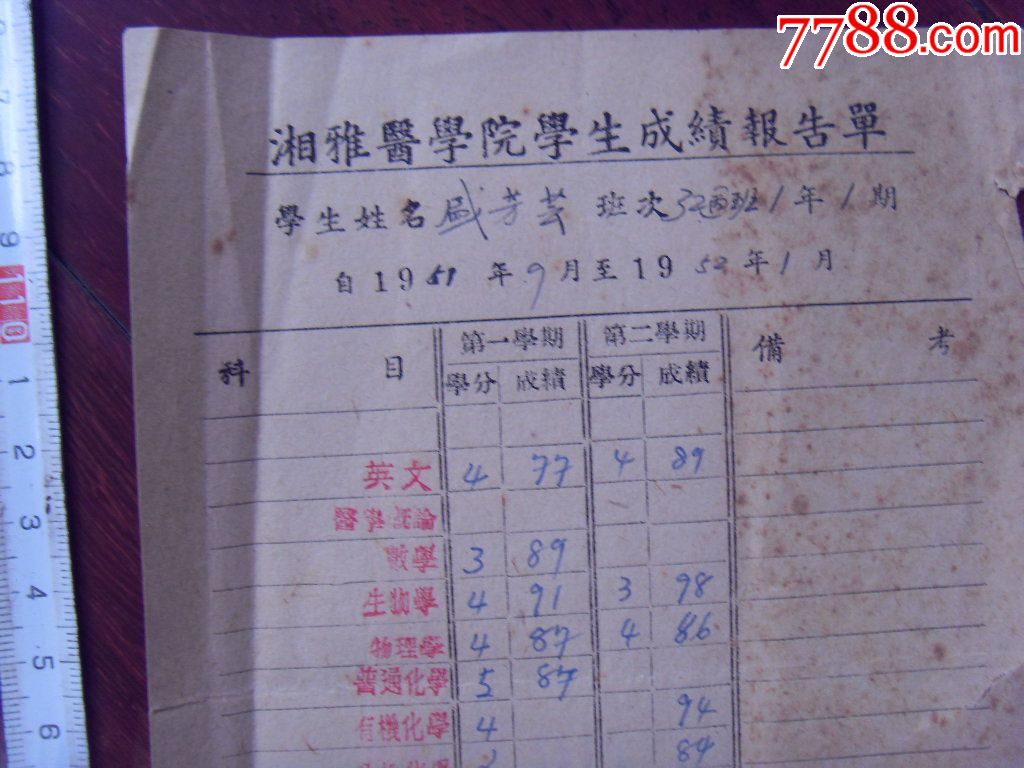 7788.com
湘雅醫學院學生成績報告單
學生姓名 盛芳芸 班次 班1年1期
自1951年9月至1952年1月
科目 第一學期 第二學期 備考
學分 成績 學分 成績
英文 4 77 4 89
醫學概論
數學 3 89
生物學 4 91 3 98
物理學 4 87 4 86
普通化學 5 87
有機化學 4 94
84
7 8 9 110 1 2 3 4 5 6